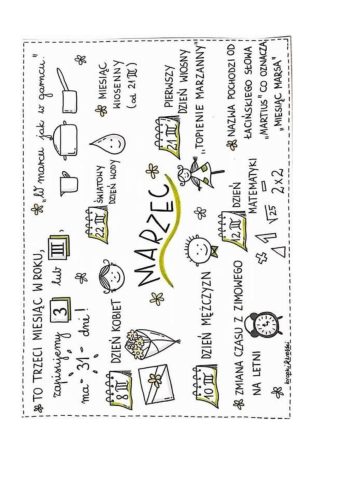 TO TRZECI MIESIĄC W ROKU,
zapisujemy 3 lub III,
ma - 31 - dni!
"W marcu jak w garncu"
MIESIĄC
WIOSENNY
(od 21 III)
8 III DZIEŃ KOBIET
22 III ŚWIATOWY
DZIEŃ WODY
MARZEC
21 III PIERWSZY
DZIEŃ WIOSNY
"TOPIENIE MARZANNY"
10 III DZIEŃ MĘŻCZYZN
12 III DZIEŃ
MATEMATYKI
√25 2x2
ZMIANA CZASU Z ZIMOWEGO
NA LETNI
NAZWA POCHODZI OD
ŁACIŃSKIEGO SŁOWA
"MARTIUS" CO OZNACZA
"MIESIĄC MARSA"